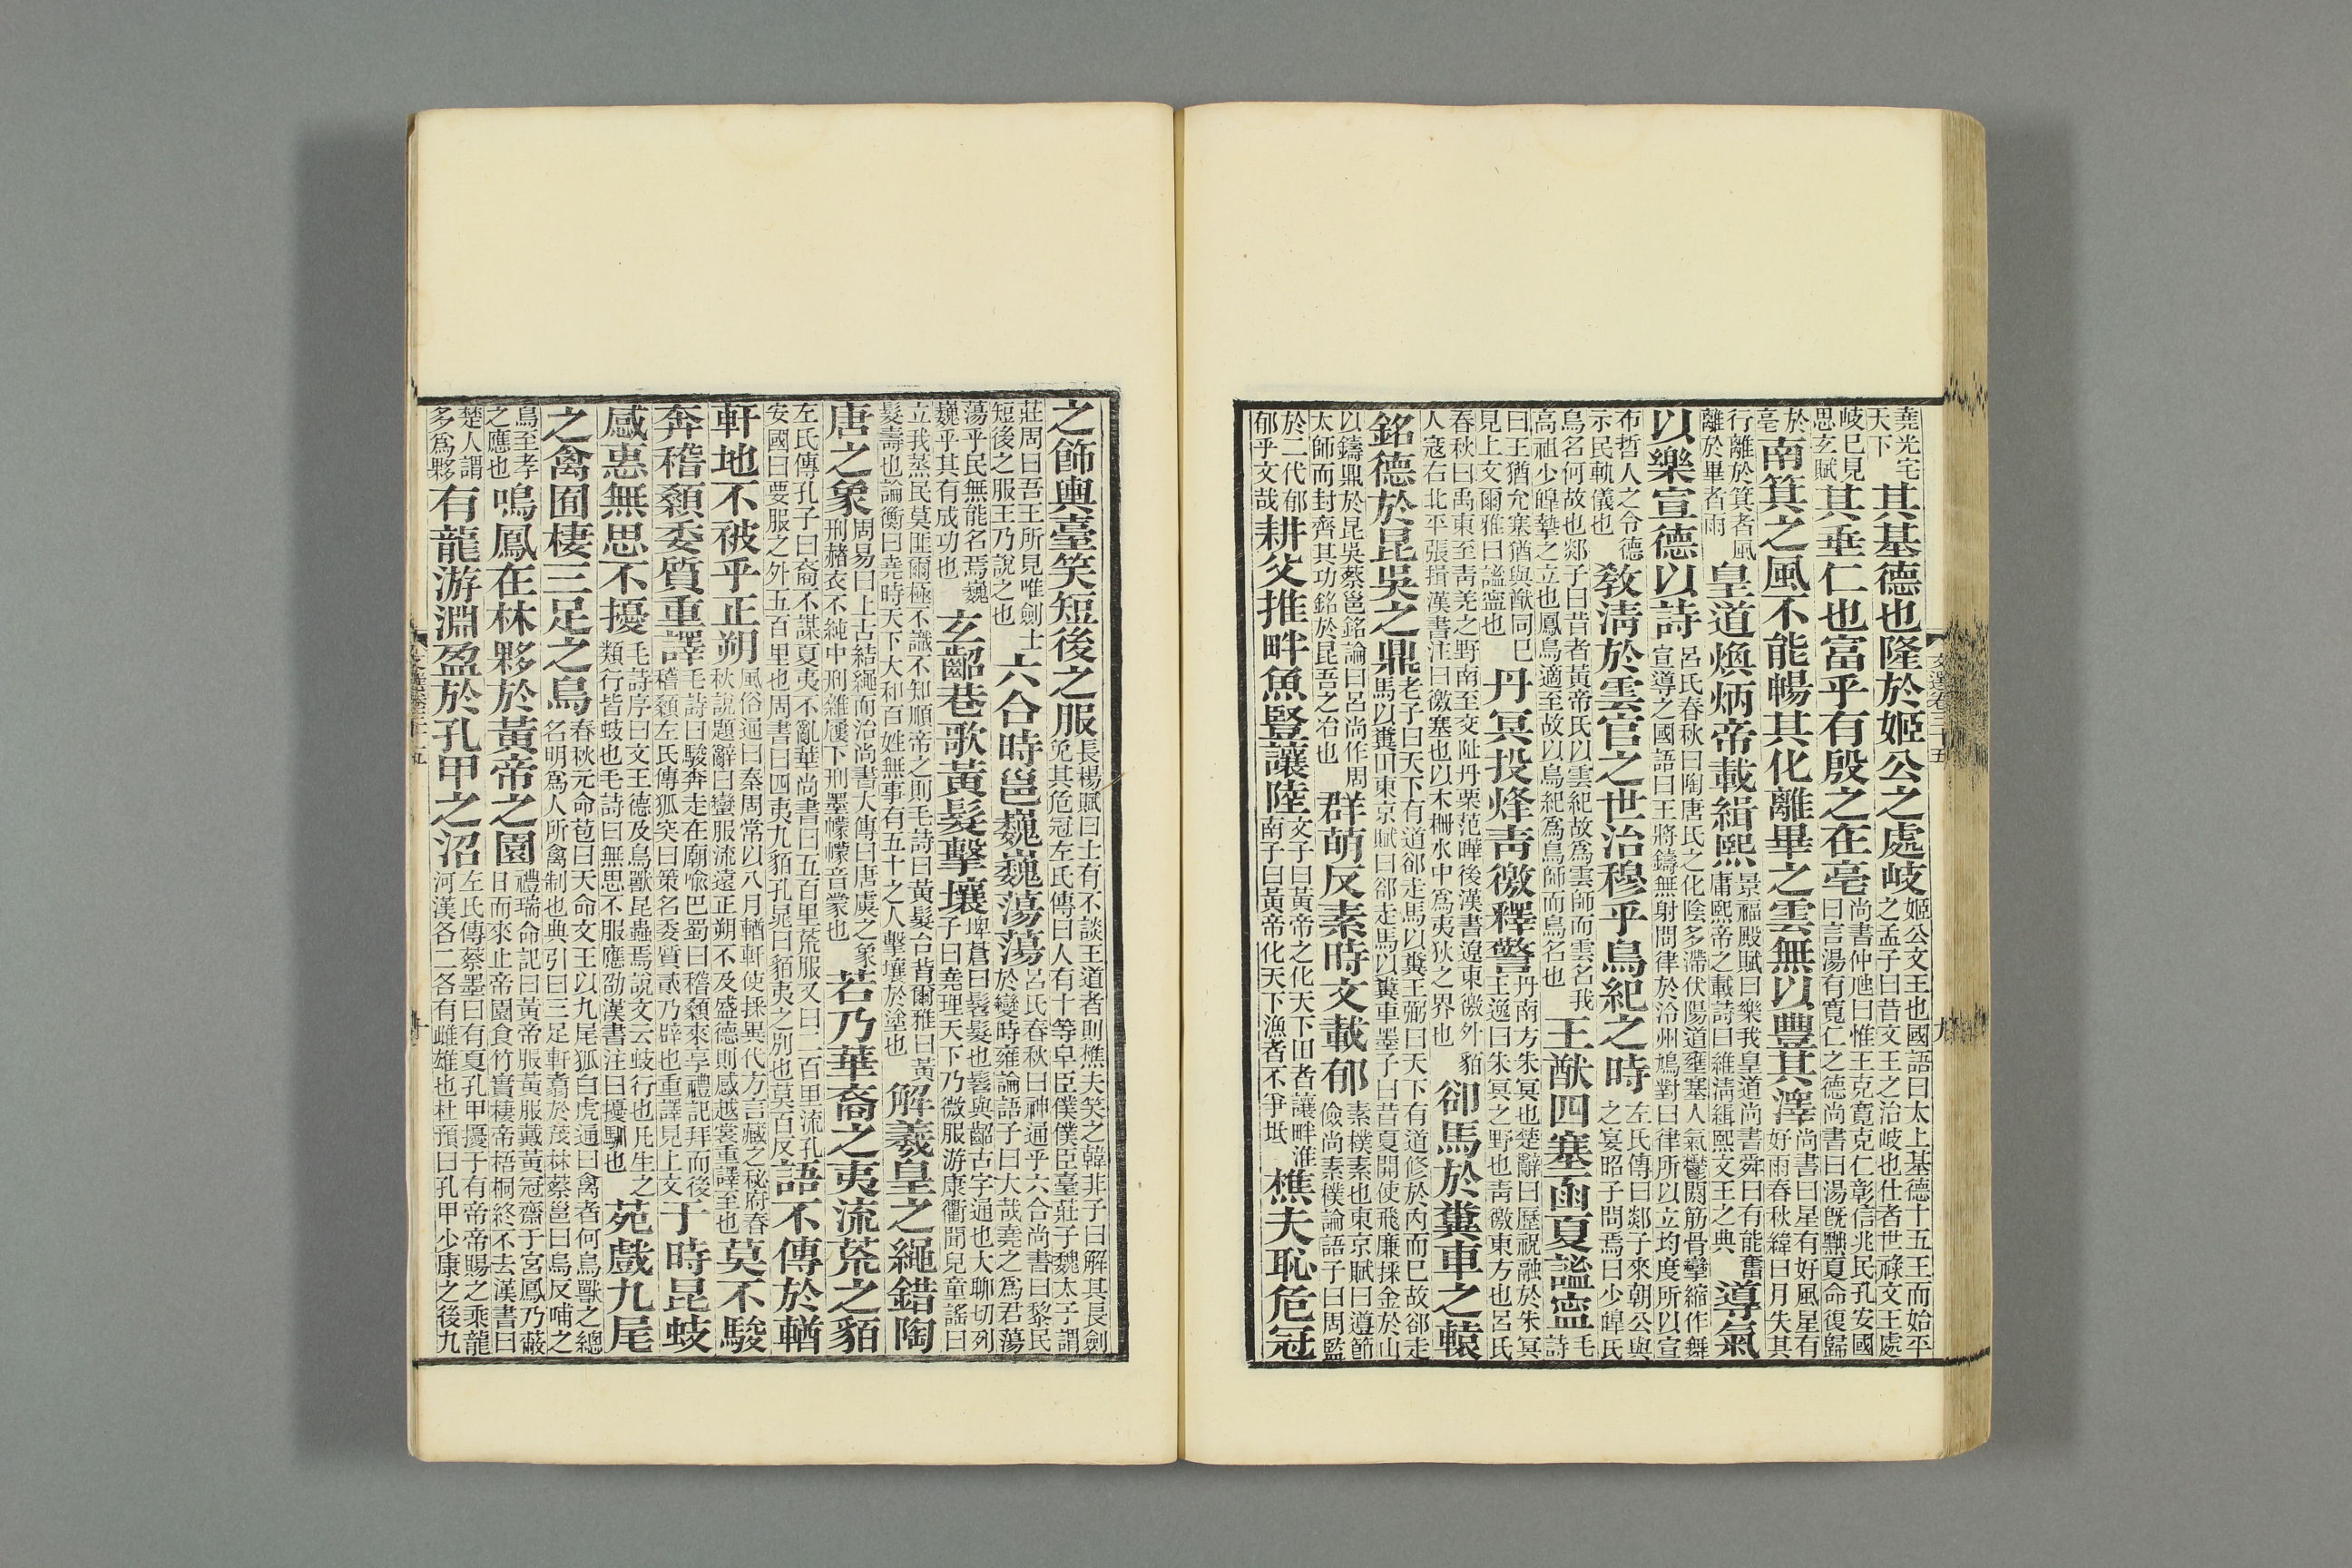 堯光宅天下其基德也隆於姬公之處岐姬公文王也國語曰太上基德十五王而始平之孟子曰昔文王之治岐也仕者世祿文王處
岐已見思玄賦其垂仁也富乎有殷之在亳尚書仲虺曰惟王克寬克仁彰信兆民孔安國曰言湯有寬仁之德尚書曰湯旣黜夏命復歸
於亳南箕之風不能暢其化離畢之雲無以豐其澤尚書曰星有好風星有好雨春秋緯曰月失其
行離於箕者風離於畢者雨皇道煥炳帝載緝熙景福殿賦曰樂我皇道尚書舜曰有能奮庸熙帝之載詩曰維淸緝熙文王之典導氣
以樂宣德以詩呂氏春秋曰陶唐氏之化陰多滯伏陽道壅塞人氣鬱閼筋骨攣縮作舞宣導之國語曰王將鑄無射問律於泠州鳩對曰律所以立均度所以宣
布哲人之令德示民軌儀也敎淸於雲官之世治穆乎鳥紀之時左氏傳曰郯子來朝公與之宴昭子問焉曰少皥氏
鳥名何故也郯子曰昔者黃帝氏以雲紀故爲雲師而雲名我高祖少皥摯之立也鳳鳥適至故以鳥紀爲鳥師而鳥名也王猷四塞函夏謐寍毛詩
曰王猶允塞猶與猷同巳見上文爾雅曰謐寍也丹冥投烽靑徼釋警丹南方朱冥也楚辭曰歷祝融於朱冥王逸曰朱冥之野也靑徼東方也呂氏
春秋曰禹東至靑羌之野南至交阯丹粟范曄後漢書遼東徼外貊人寇右北平張揖漢書注曰徼塞也以木柵水中爲夷狄之界也卻馬於糞車之轅
銘德於昆吳之鼎老子曰天下有道卻走馬以糞王弼曰天下有道修於內而已故卻走馬以糞田東京賦曰卻走馬以糞車墨子曰昔夏開使飛廉採金於山
以鑄鼎於昆吳蔡邕銘論曰呂尚作周太師而封齊其功銘於昆吾之冶也群萌反素時文載郁素樸素也東京賦曰遵節儉尚素樸論語子曰周監
於二代郁郁乎文哉耕父推畔魚豎讓陸文子曰黃帝之化天下田者讓畔淮南子曰黃帝化天下漁者不爭坻樵夫恥危冠
文選卷三十五
九
之飾輿臺笑短後之服長楊賦曰士有不談王道者則樵夫笑之韓非子曰解其長劍免其危冠左氏傳曰人有十等皁臣僕僕臣臺莊子魏太子謂
莊周曰吾王所見唯劍士短後之服王乃說之也六合時邕巍巍蕩蕩呂氏春秋曰神通乎六合尚書曰黎民於變時雍論語子曰大哉堯之爲君蕩
蕩乎民無能名焉巍巍乎其有成功也玄齠巷歌黃髮擊壤埤蒼曰髫髮也髫與齠古字通也大聊切列子曰堯理天下乃微服游康衢聞兒童謠曰
立我蒸民莫匪爾極不識不知順帝之則毛詩曰黃髮台背爾雅曰黃髮壽也論衡曰堯時天下大和百姓無事有五十之人擊壤於塗也解羲皇之繩錯陶
唐之象周易曰上古結繩而治尚書大傳曰唐虞之象刑赭衣不純中刑雜屨下刑墨幪幪音蒙也若乃華裔之夷流荒之貊
左氏傳孔子曰裔不謀夏夷不亂華尚書曰五百里荒服又曰二百里流孔安國曰要服之外五百里也周書曰四夷九貊孔晁曰貊夷之別也莫百反語不傳於輶
軒地不被乎正朔風俗通曰秦周常以八月輶軒使採異代方言藏之秘府春秋說題辭曰蠻服流遠正朔不及盛德則感越裳重譯至也莫不駿
奔稽顙委質重譯毛詩曰駿奔走在廟喩巴蜀曰稽顙來享禮記拜而後稽顙左氏傳狐突曰策名委質貳乃辟也重譯見上文于時昆蚑
感惠無思不擾毛詩序曰文王德及鳥獸昆蟲焉說文云蚑行也凡生之類行皆蚑也毛詩曰無思不服應劭漢書注曰擾馴也苑戲九尾
之禽囿棲三足之烏春秋元命苞曰天命文王以九尾狐白虎通曰禽者何鳥獸之總名明爲人所禽制也典引曰三足軒翥於茂林蔡邕曰烏反哺之
鳥至孝之應也鳴鳳在林夥於黃帝之園禮瑞命記曰黃帝服黃服戴黃冠齋于宮鳳乃蔽日而來止帝園食竹實棲帝梧桐終不去漢書曰
楚人謂多爲夥有龍游淵盈於孔甲之沼左氏傳蔡墨曰有夏孔甲擾于有帝帝賜之乘龍河漢各二各有雌雄也杜預曰孔甲少康之後九